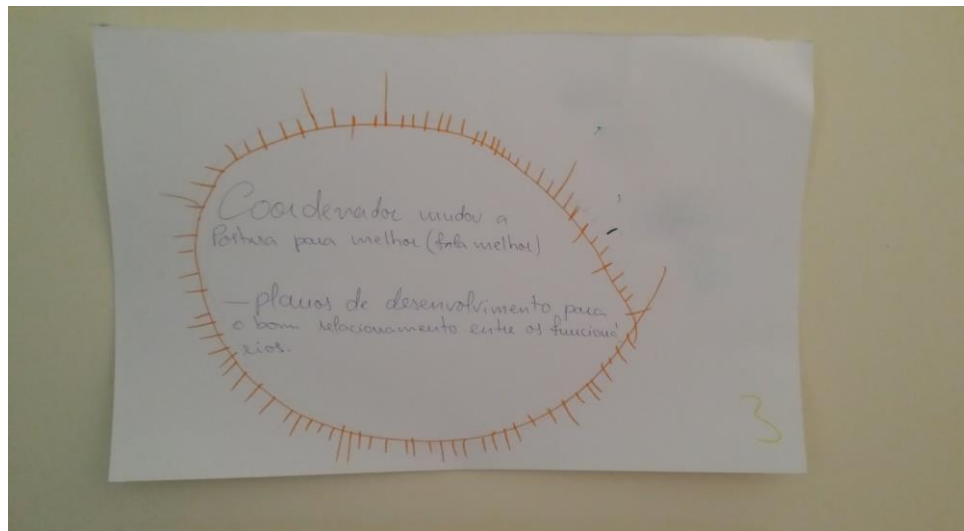 Coordenador mudar a
Postura para melhor (fala melhor)
— planos de desenvolvimento para
o bom relacionamento entre os funcioná
rios.
3